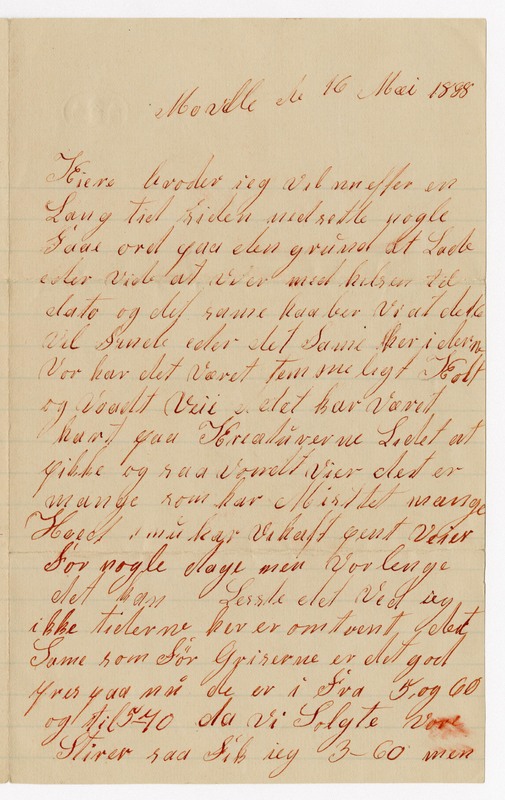 Morville de 16 Mai 1888
Kiere broder ieg vil nu effer en
Lang tid siden nedsette nogle
faae ord paa den grund at Lade
eder vide at vi er med helsen til
dato og det same haaber vi at dette
vil finde eder det Same her i
Vor har det været temmeligt Kolt
og Vaadt Veir det har været
hart paa Kreaturerne Lidet at
pikke og saa vondt Vier det er
mange som har Mistet mange
nu har Vi haft pent Veier
För nogle dage men Vor lenge
det kan det Ved ieg
ikke tiderne her er omtrent det
Same som För Griserne er det god
pres paa nu de er i Fra 5, og 60
og til 5-70 da Vi Solgte Vore
Stirer saa Fik ieg 3-60 men